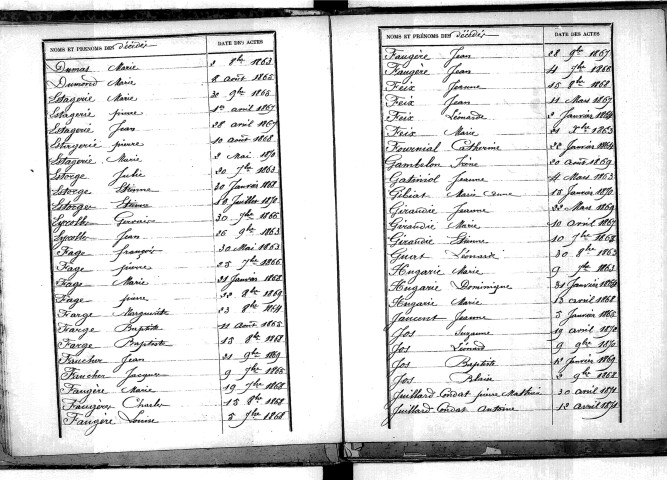 NOMS ET PRÉNOMS DES décédés DATE DES ACTES
Dumas Marie 2 8bre 1863
Dumond Marie 8 août 1865
Estagerie Marie 30 9bre 1865
Estagerie pierre 1er avril 1867
Estagerie Jean 28 avril 1867
Estargerie pierre 10 août 1868
Estagerie Marie 2 Mai 1870
Estorge Julie 20 7bre 1863
Estorge Etienne 30 Janvier 1868
Estorges Etienne 10 Juillet 1870
Eyrolles Gervais 30 7bre 1866
Eyrolles Jean 26 9bre 1863
Fage françois 30 Mai 1863
Fage pierre 25 7bre 1866
Fage Marie 21 Janvier 1868
Fage pierre 22 8bre 1869
Farge Marguerite 23 8bre 1864
Farge Baptiste 11 Août 1865
Farge Baptiste 15 8bre 1868
Faucher Jean 21 9bre 1869
Faucher Jacques 9 7bre 1865
Faugère Marie 19 7bre 1868
Faugères Charles 15 8bre 1868
Faugère Louise 5 7bre 1868
NOMS ET PRÉNOMS DES décédés DATE DES ACTES
Faugère Jean 28 9bre 1867
Faugère Jean 4 7bre 1866
Feix Jeanne 15 8bre 1868
Feix Jean 11 Mars 1867
Feix Léonarde 2 Janvier 1868
Feix Marie 21 Xbre 1863
Fournial Catherine 22 Janvier 1864
Gambelon Irène 20 août 1869
Gatiniol Jeanne 4 Mars 1863
Gibiat Marie Anne 15 Janvier 1870
Girandie Jeanne 22 Mars 1869
Girandie Marie 10 avril 1867
Girandie Etienne 10 7bre 1868
Giert Léonard 30 8bre 1863
Hugarie Marie 9 7bre 1863
Hugarie Dominique 31 Janvier 1864
Hugarie Marie 13 avril 1868
Jaucent Jeanne 5 Janvier 1865
Jos Suzanne 19 avril 1870
Jos Léonard 9 9bre 1870
Jos Baptiste 12 Janvier 1869
Jos Blaise 2 9bre 1868
Juillard Condat pierre Mathieu 30 avril 1871
Juillard Condat Antoine 12 avril 1871